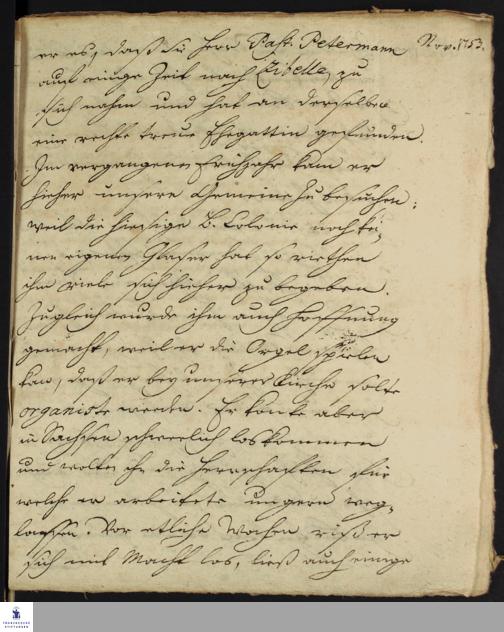 er es, daß sie Herr Past. Petermann Nov. 1753.
auf einige Zeit nach Zibelle, zu
sich nahm und hat an derselben
eine rechte treue Ehegattin gefunden.
Im vergangenen Frühjahr kam er
hieher unsere Gemeine zu besuchen;
weil die hiesige B. Colonie noch kei-
nen eigenen Glaser hat so riethen
ihm viele sich hieher zu begeben.
Zugleich wurde ihm auch Hoffnung
gemacht, weil er die Orgel spielen
kan, daß er bey unserer Kirche solte
organiste werden. Er konte aber
in Sachsen schwerlich loskommen
und wolten ihn die Herrschafften für
welche er arbeitete ungern weg-
lassen. Vor etliche Wochen riß er
sich mit Macht los, ließ auch einige
FRANCKESCHE
STIFTUNGEN